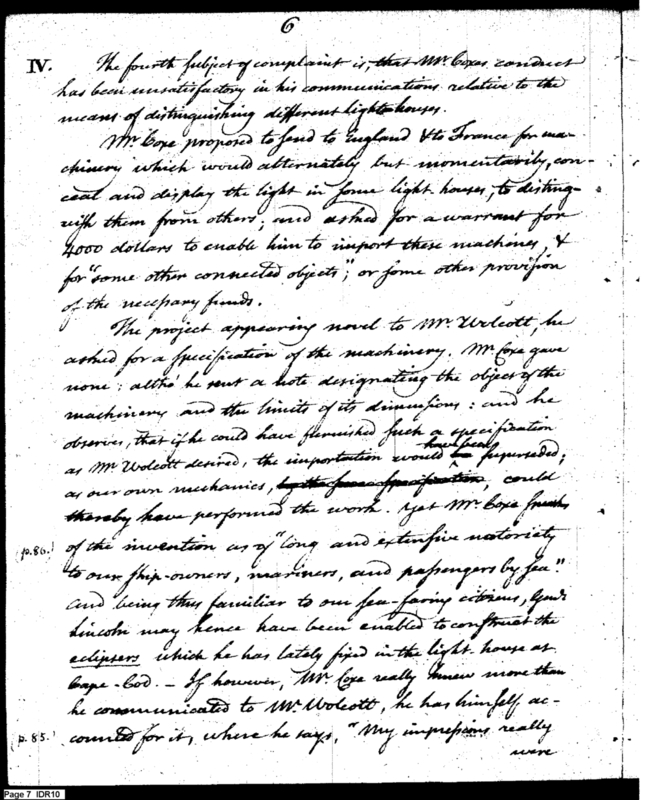 6
IV. The fourth subject of complaint is, that Mr. Coxes conduct
has been unsatisfactory in his communications relative to the
means of distinguishing different light houses.
Mr. Coxe proposed to send to England & to France for ma-
chinery which would alternately but momentarily, con-
ceal and display the light in some light houses, to disting-
uish them from others; and asked for a warrant for
4000 dollars to enable him to import these machines, &
for "some other connected objects"; or some other provision
of the necessary funds.
The project appearing novel to Mr. Wolcott, he
asked for a specification of the machinery. Mr. Coxe gave
none: altho' he sent a note designating the object of the
machinery and the limits of its dimensions: and he
observes, that if he could have furnished such a specification
as Mr. Wolcott desired, the importation would have been be superseded;
as our own mechanics, by the same specification could
thereby have performed the work. Yet Mr. Coxe speaks
p. 86. of the invention as of "long and extensive notoriety
to our ship-owners, mariners, and passengers by sea."
And being thus familiar to our sea-faring citizens, Genl.
Lincoln may hence have been enabled to construct the
eclipsers which he has lately fixed in the light house at
Cape-Cod. - If however, Mr. Coxe really knew more than
he communicated to Mr. Wolcott, he has himself ac-
p. 85. counted for it, where he says, "My impressions really
were
Page 7 IDR10